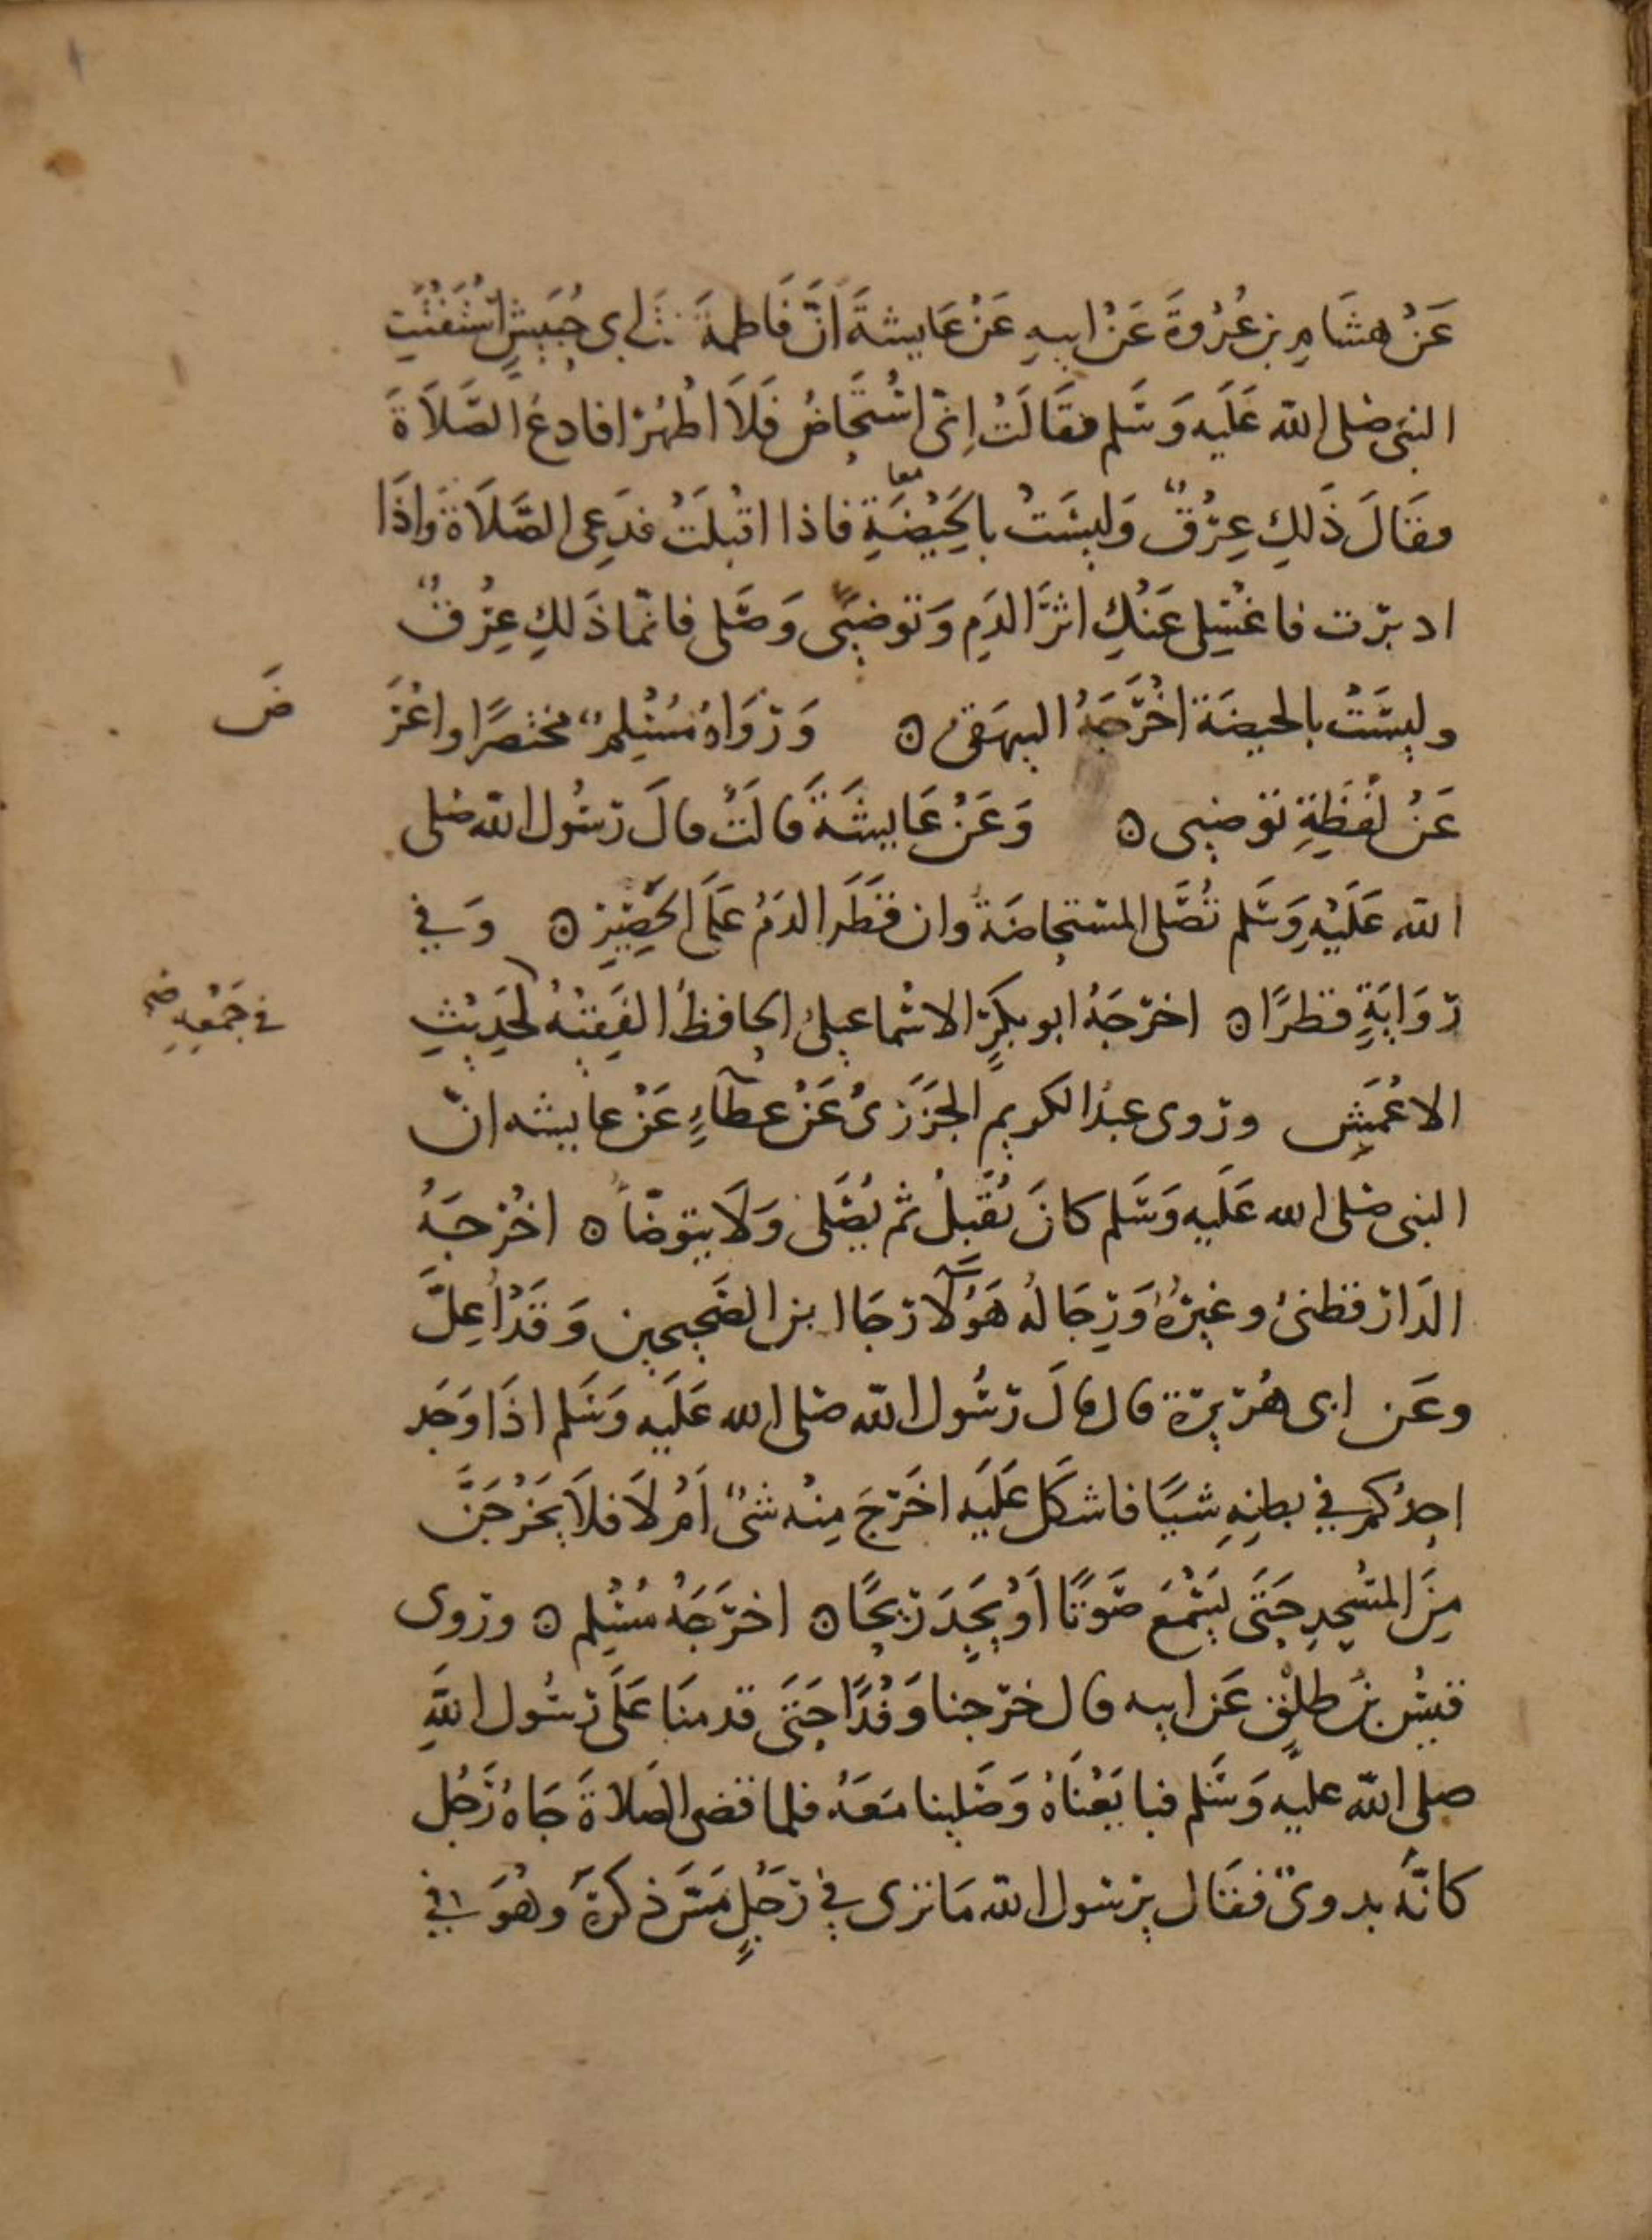 عَنْ هشَامِ بن عُرْوَةَ عَنْ ابيهِ عَنْ عَايشةَ انَّ فَاطمةَ بنَةَ ابى حُبَيشٍ اسْتَفْتَتِ
النبى صلى الله عَلَيه وَسَلم فقَالَتْ اِنّى اسْتحَاضُ فَلَا اطْهُرْ افادعُ الصَّلَاةَ
فقَالَ ذَلِكِ عِرْقٌ وَليسَتْ بالحَيْضَةِ فاذا اقْبلَتْ فدَعِى الصَّلَاةَ وَاِذَا
معا
ادبرت فاغْسِلى عَنْكِ اثرَ الدَمِ وَتوضئى وَصَلى فانمّا ذَلكِ عِرْقٌ
وليسَتْ بالحيضَة اخْرَجَهُ البيهَقى ۵ وَرَوَاهُ مُسْلِمٌ مختصرًا واعْرَ
ضَ
عَنْ لَفظَةِ توضئى ۵ وَعَنْ عَايشَةَ قَالَتْ قالَ رَسُول الله صلى
الله عَلَيْهِ وَسَلم تُصَلى المستحاضَةُ وان قَطَرَ الدَمُ عَلَى الحَصِيْرِ ۵ وَفي
رِوَايَةٍ قطرًا ۵ اخرَجَهُ ابو بكرٍ الاسْماعيلىُ الحافظُ الفَقِيْهُ لحَدِيْثِ
في جَمْعِهِ لحَدِيثِ صح
الاعْمَشِ وروى عبدُ الكريم الجَزَرىُ عَنْ عطَآءٍ عَنْ عايشه انّ
النبى صلى الله عَلَيه وَسَلم كانَ يُقَبلُ ثم يُصَلى وَلَا يتوضّأ ۵ اخْرجَهُ
الدَارقطنىُ وغيرُهُ وَرِجَالُهُ هَؤُلَآ رجَال الصَحيحين وَقَدْ اُعِلَّ
وعَن ابى هُريرة قال قالَ رَسُول الله صلى الله عَلَيه وَسَلم اذَا وَجَدَ
احدُكم في بطنِهِ شيًا فاشكَل عَلَيه اخَرَجَ مِنْه شىٌ اَمْ لَا فلَا يَخْرُجَنَّ
مِنَ المَسْجِدِ حَتَى يَسْمَعَ صَوتًا اَوْ يَجِدَ ريحًا ۵ اخرَجَهُ مُسْلِم ۵ وروى
قيسُ بنُ طلقٍ عَن ابيه قال خرَجنا وَفْدًا حَتَى قدمنَا عَلَى رَسُول اللهِ
صلى الله عليه وَسَلم فبايَعْنَاهُ وَصَلينا مَعَهُ فلما قضى الصَلاةَ جَاهُ رَجُل
كانهُ بدوىٌ فقَال يرسول الله مَا ترى في رَجلٍ مَسَ ذكرَهُ وَهُوَ في